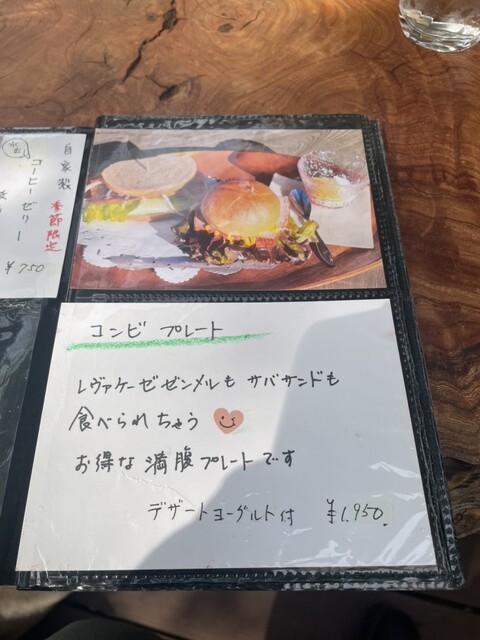 自家製
季節限定
コーヒーゼリー
¥750
コンビ プレート
レヴァケーゼゼンメルも サバサンドも
食べられちゃう
お得な 満腹プレートです
デザートヨーグルト付 ¥1,950.